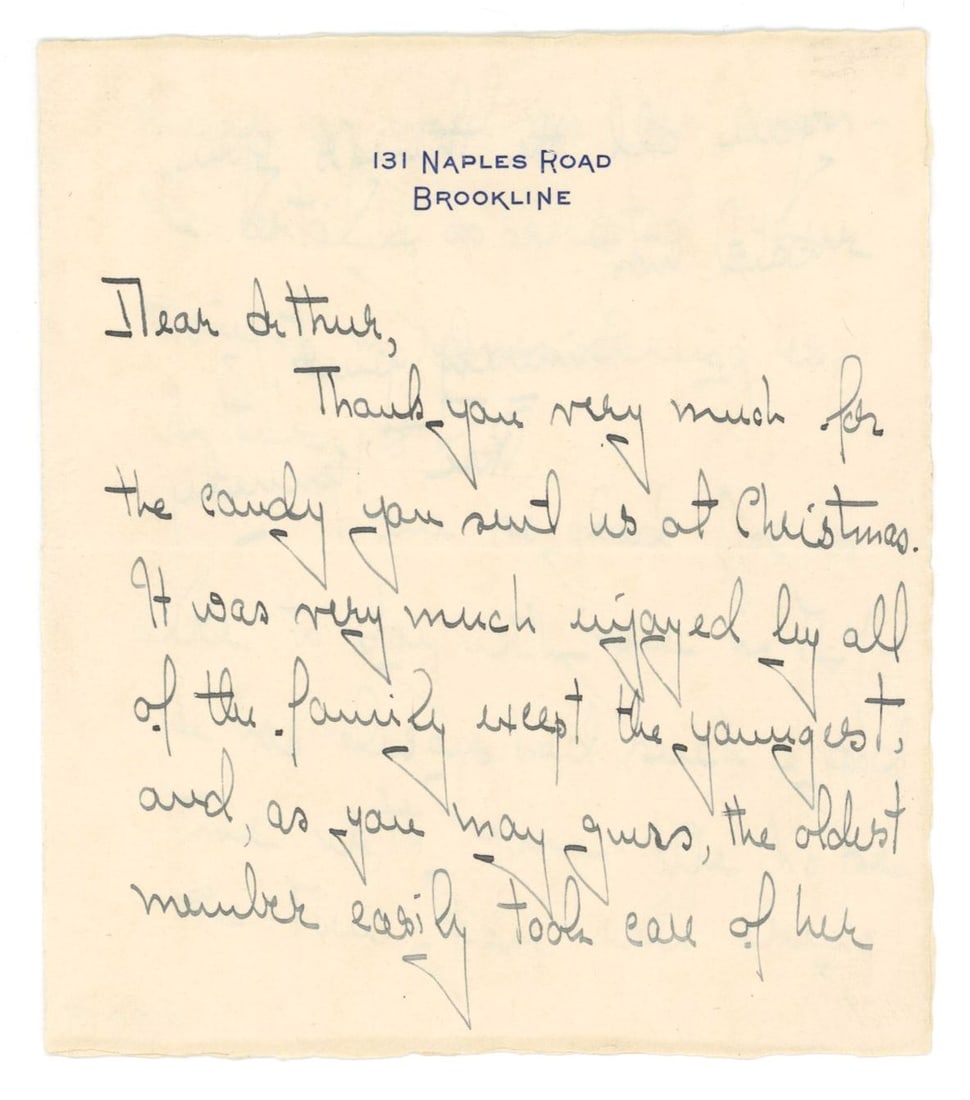 131 NAPLES ROAD
BROOKLINE
Dear Arthur,
Thank you very much for
the candy you sent us at Christmas.
It was very much enjoyed by all
of the family except the youngest,
and, as you may guess, the oldest
member easily took care of her